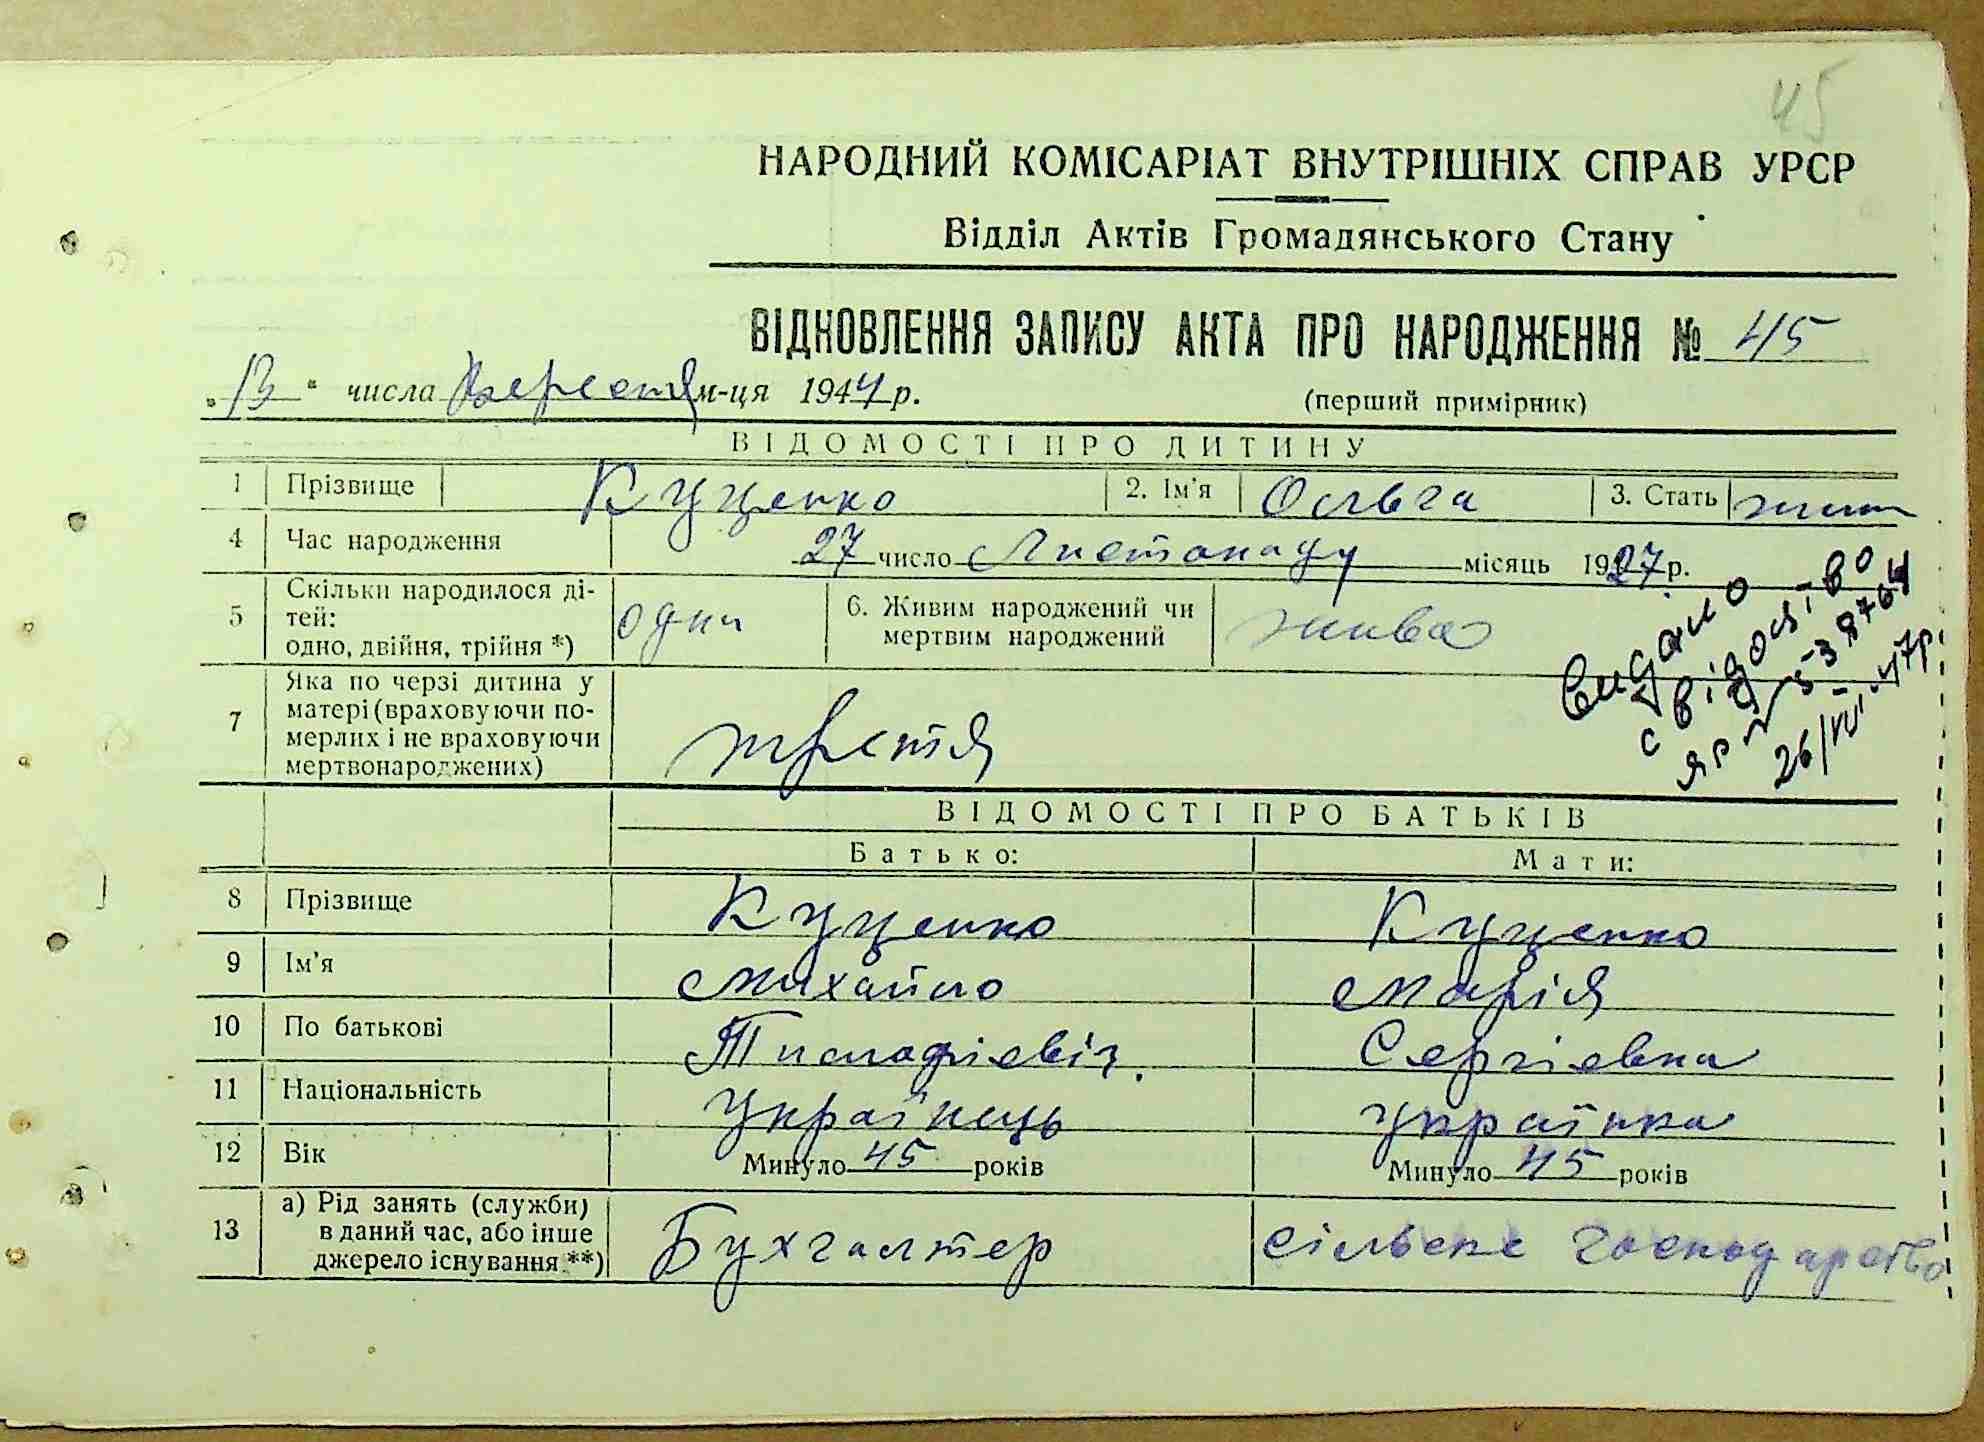 45
НАРОДНИЙ КОМІСАРІАТ ВНУТРІШНІХ СПРАВ УРСР
Відділ Актів Громадянського Стану
ВІДНОВЛЕННЯ ЗАПИСУ АКТА ПРО НАРОДЖЕННЯ № 45
„13“ числа Вересня м-ця 1944 р.
(перший примірник)
ВІДОМОСТІ ПРО ДИТИНУ
1 Прізвище Куценко 2. Ім'я Ольга 3. Стать жін
4 Час народження 27 число Листопаду місяць 1927 р.
5 Скільки народилося ді-
тей:
одно, двійня, трійня *) одна
6. Живим народжений чи
мертвим народжений жива
7 Яка по черзі дитина у
матері (враховуючи по-
мерлих і не враховуючи
мертвонароджених) третя
Видано
свідоцтво
26/VII-47р.
ВІДОМОСТІ ПРО БАТЬКІВ
Батько: Мати:
8 Прізвище Куценко Куценко
9 Ім'я Михайло Марія
10 По батькові Сергіевна
11 Національність Українець Українка
12 Вік Минуло 45 років Минуло 45 років
13 а) Рід занять (служби)
в даний час, або інше
джерело існування **) Бухгалтер сільске господарство